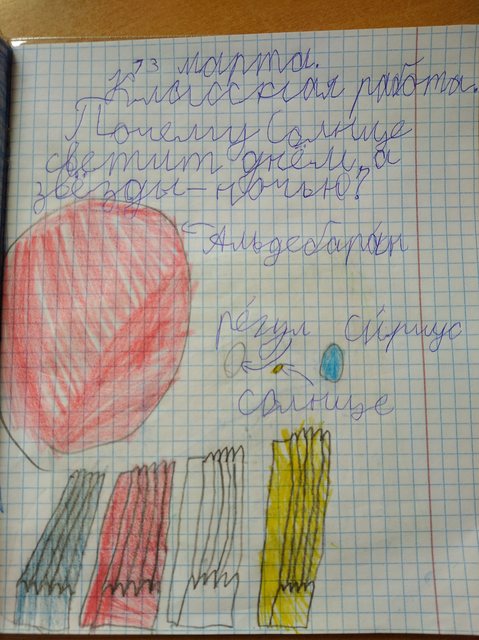 13 марта.
Классная работы.
Почему Солнце
светит днём, а
звёзды – ночью?
Альдебаран
ре́гул си́риус
солнце